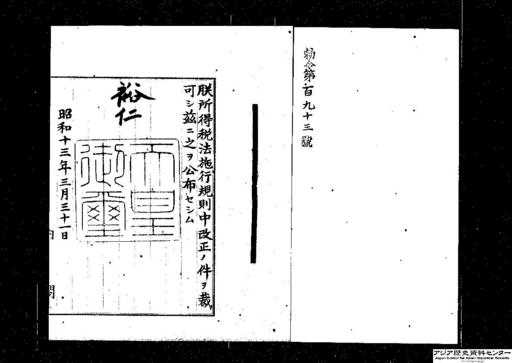 勅令第百九十三號
朕所得税法施行規則中改正ノ件ヲ裁
可シ茲ニ之ヲ公布セシム
裕仁
天皇
御璽
昭和十三年三月三十一日
内 閣
アジア歴史資料センター
Japan Center for Asian Historical Records